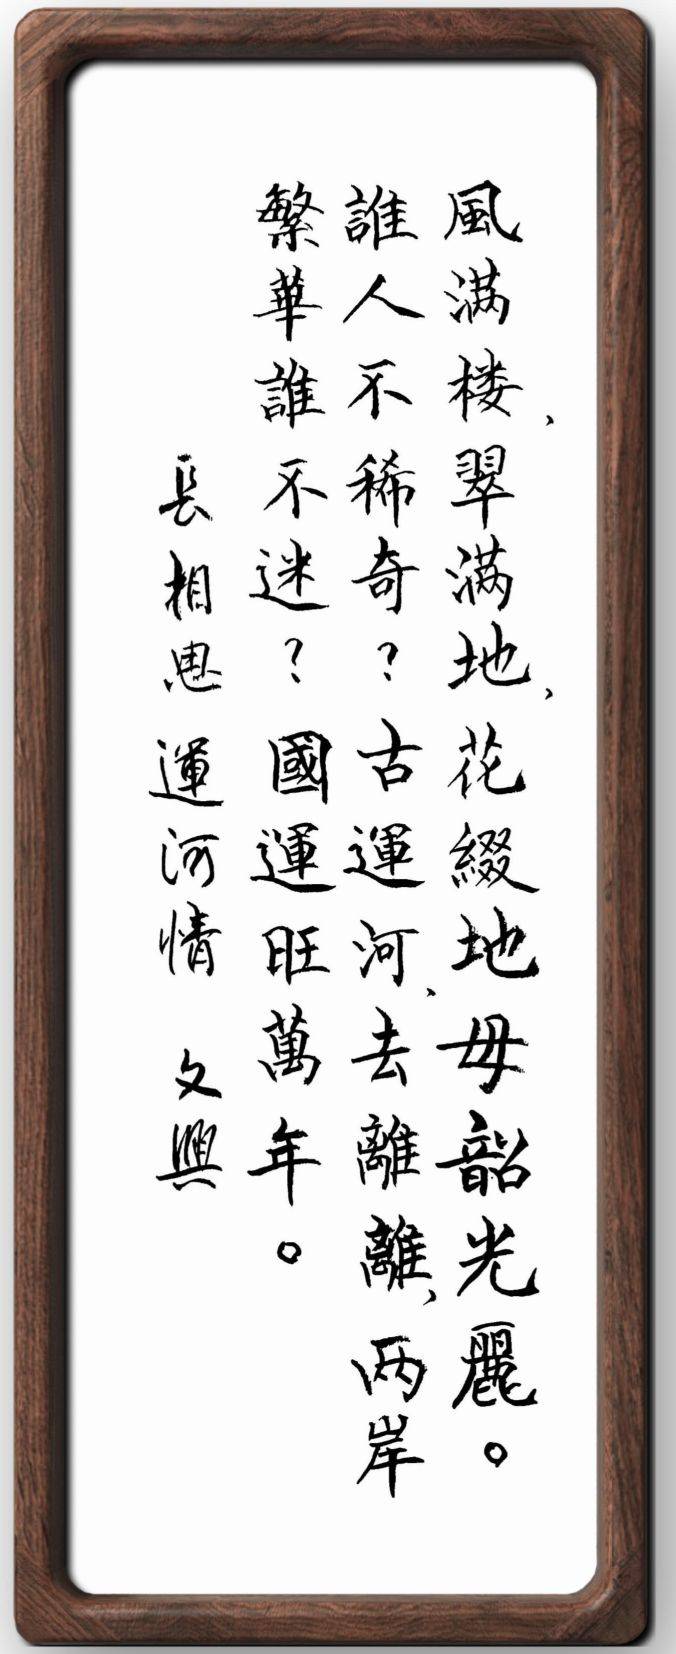 風满楼、翠满地、花綴地毋韶光麗。
誰人不稀奇？古運河、去離離、两岸
繁華誰不迷？國運旺萬年。
長相思 運河情 文興